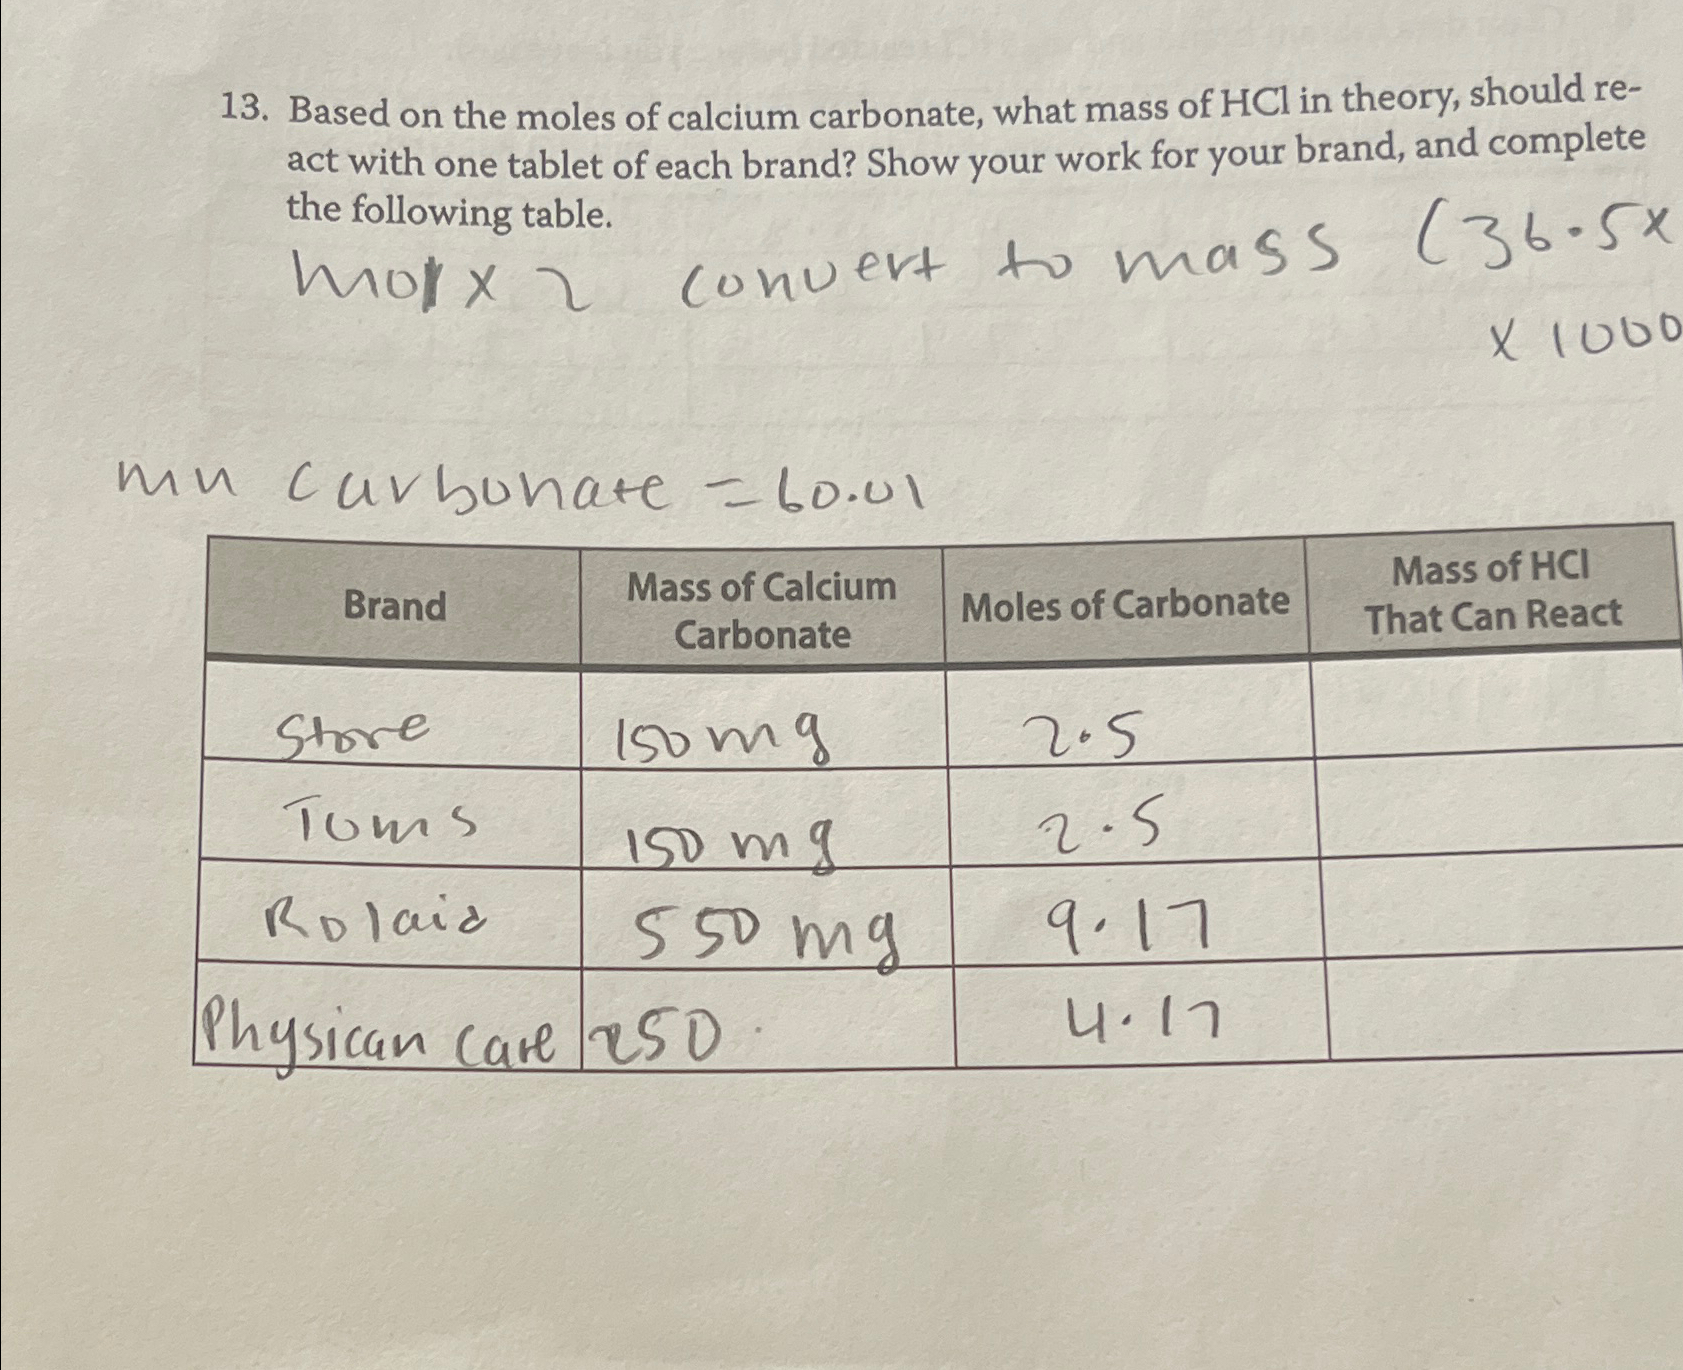 13. Based on the moles of calcium carbonate, what mass of HCl in theory, should re-
act with one tablet of each brand? Show your work for your brand, and complete
the following table.
mol x 2 convert to mass (36.5x
x 1000
carbonate = 60.01
Brand
Mass of Calcium
Carbonate
Moles of Carbonate
Mass of HCl
That Can React
Store 150mg 2.5
Tums 150 mg 2.5
Rolaid 550 mg 9.17
Physican care 250 4.17